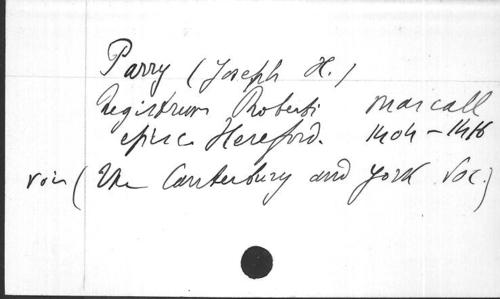 Parry (Joseph H.)
Registrum Roberti Mascall
episc. Hereford. 1404-1416
voir (The Canterbury and York Soc.)